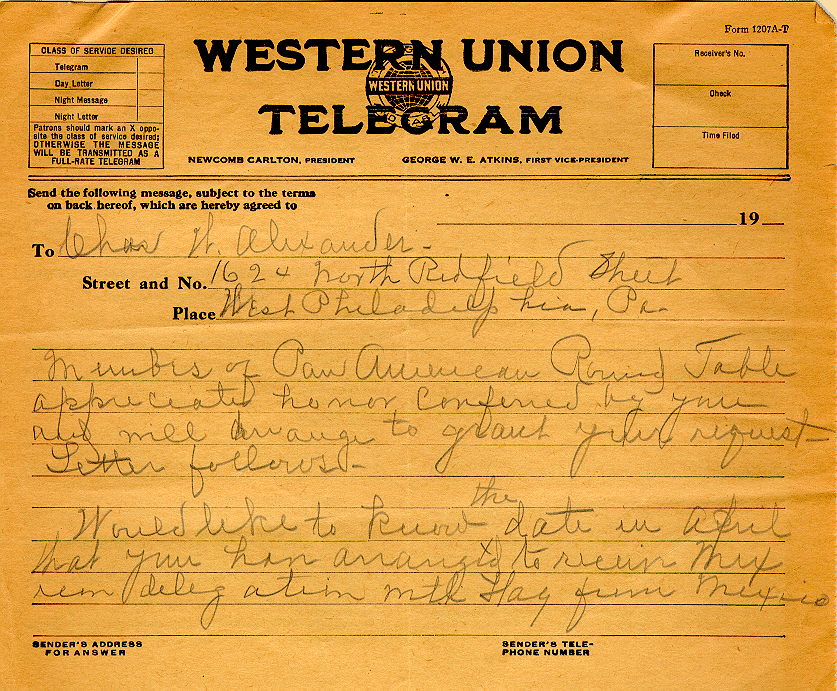 Form 1207A-T
CLASS OF SERVICE DESIRED
Telegram
Day Letter
Night Message
Night Letter
Patrons should mark an X oppo-
site the class of service desired;
OTHERWISE THE MESSAGE
WILL BE TRANSMITTED AS A
FULL-RATE TELEGRAM
WESTERN UNION
WESTERN UNION
TELEGRAM
NEWCOMB CARLTON, PRESIDENT
GEORGE W. E. ATKINS, FIRST VICE-PRESIDENT
Receiver's No.
Check
Time Filed
Send the following message, subject to the terms
on back hereof, which are hereby agreed to
19
To Chas W. Alexander-
Street and No. 1624 North Redfield Street
Place West Philadelphia, Pa-
Members of Pan American Round Table
appreciated honor conferred by you
and will arrange to grant your request-
Letter follows-
Would like to know the date in April
that you han arranged to receive Mex
ican delegation with flag from Mexico
SENDER'S ADDRESS
FOR ANSWER
SENDER'S TELE-
PHONE NUMBER